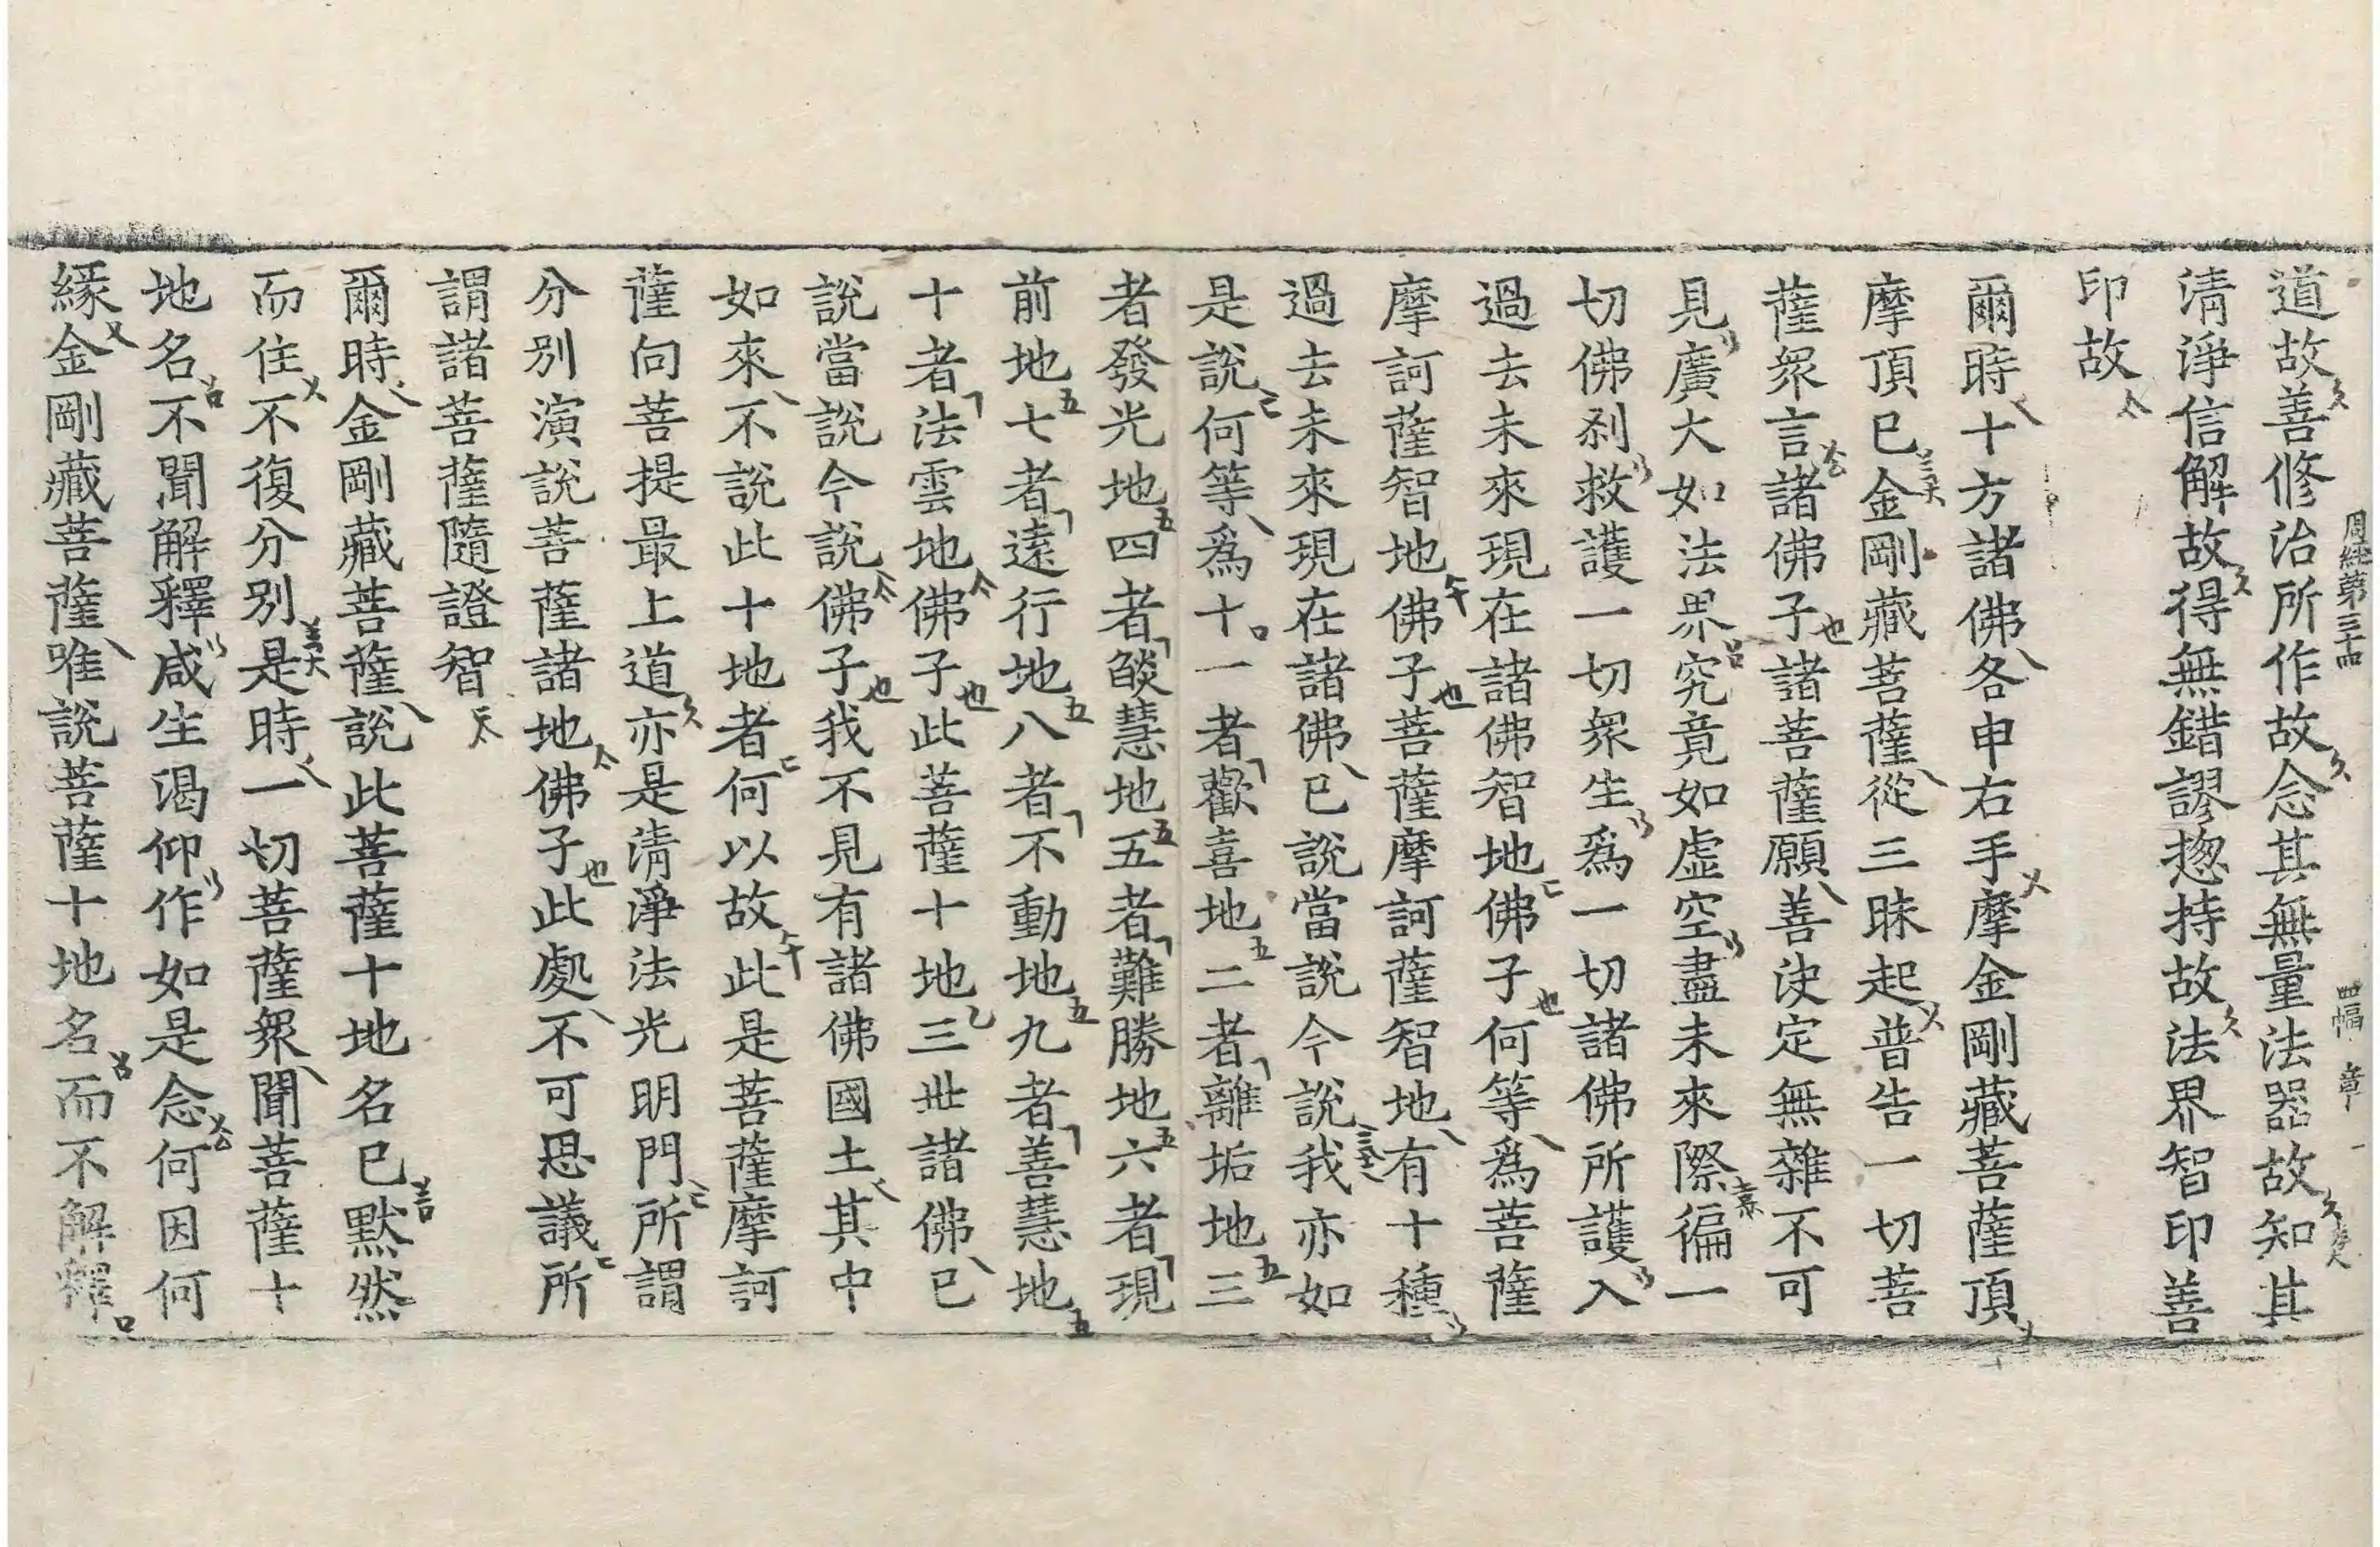 道故善修治所作故念其無量法器故知其
周經第三十四 四幅 章
清淨信解故得無錯謬揔持故法界智印善
印故
爾時十方諸佛各申右手摩金剛藏菩薩頂
摩頂已金剛藏菩薩從三昧起普告一切菩
薩衆言諸佛子諸菩薩願善決定無雜不可
見廣大如法界究竟如虛空盡未來際徧一
切佛刹救護一切衆生爲一切諸佛所護入
過去未來現在諸佛智地佛子何等爲菩薩
摩訶薩智地佛子菩薩摩訶薩智地有十種
過去未來現在諸佛已說當說今說我亦如
是說何等爲十一者歡喜地二者離垢地三
者發光地四者燄慧地五者難勝地六者現
前地七者遠行地八者不動地九者善慧地
十者法雲地佛子此菩薩十地三世諸佛已
說當說今說佛子我不見有諸佛國土其中
如來不說此十地者何以故此是菩薩摩訶
薩向菩提最上道亦是清淨法光明門所謂
分別演說菩薩諸地佛子此處不可思議所
謂諸菩薩隨證智
爾時金剛藏菩薩說此菩薩十地名已默然
而住不復分別是時一切菩薩衆聞菩薩十
地名不聞解釋咸生渴仰作如是念何因何
緣金剛藏菩薩唯說菩薩十地名而不解釋